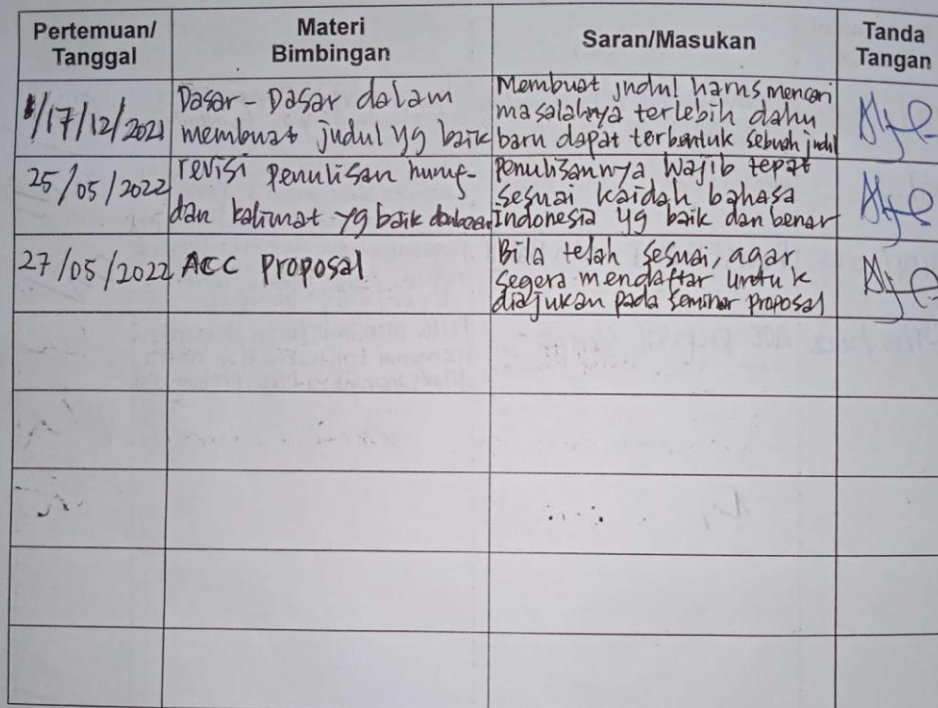 Pertemuan/
Tanggal
Materi
Bimbingan
Saran/Masukan
Tanda
Tangan
17/12/2021
Dasar-Dasar dalam
membuat judul yg baik
Membuat judul harus mencari
masalahnya terlebih dahu
baru dapat terbentuk sebuah judul
25/05/2022
revisi penulisan huruf
dan kalimat yg baik
Penulisannya wajib tepat
sesuai kaidah bahasa
Indonesia yg baik dan benar
27/05/2022
ACC Proposal
Bila telah sesuai, agar
segera mendaftar untuk
diajukan pada seminar proposal